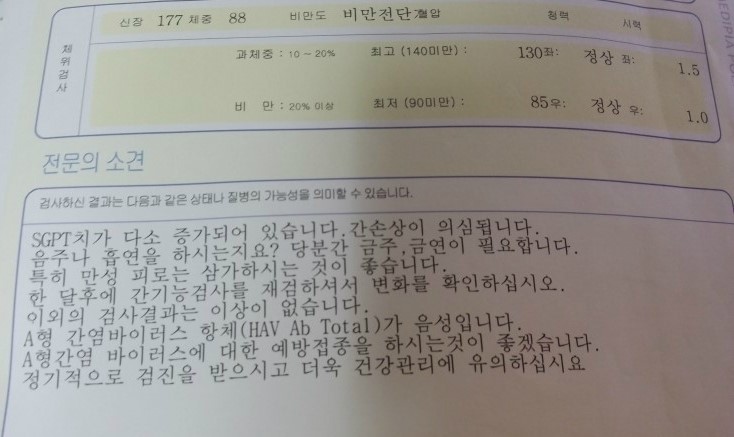 신장 177 체중 88 비만도 비만전단계 혈압 청력 시력
체위검사
과체중 : 10 ~ 20% 최고 (140미만) : 130 좌: 정상 좌: 1.5
비 만 : 20% 이상 최저 (90미만) : 85 우: 정상 우: 1.0
전문의 소견
검사하신 결과는 다음과 같은 상태나 질병의 가능성을 의미할 수 있습니다.
SGPT치가 다소 증가되어 있습니다.간손상이 의심됩니다.
음주나 흡연을 하시는지요? 당분간 금주,금연이 필요합니다.
특히 만성 피로는 삼가하시는 것이 좋습니다.
한 달후에 간기능검사를 재검하셔서 변화를 확인하십시오.
이외의 검사결과는 이상이 없습니다.
A형 간염바이러스 항체(HAV Ab Total)가 음성입니다.
A형간염 바이러스에 대한 예방접종을 하시는것이 좋겠습니다.
정기적으로 검진을 받으시고 더욱 건강관리에 유의하십시요